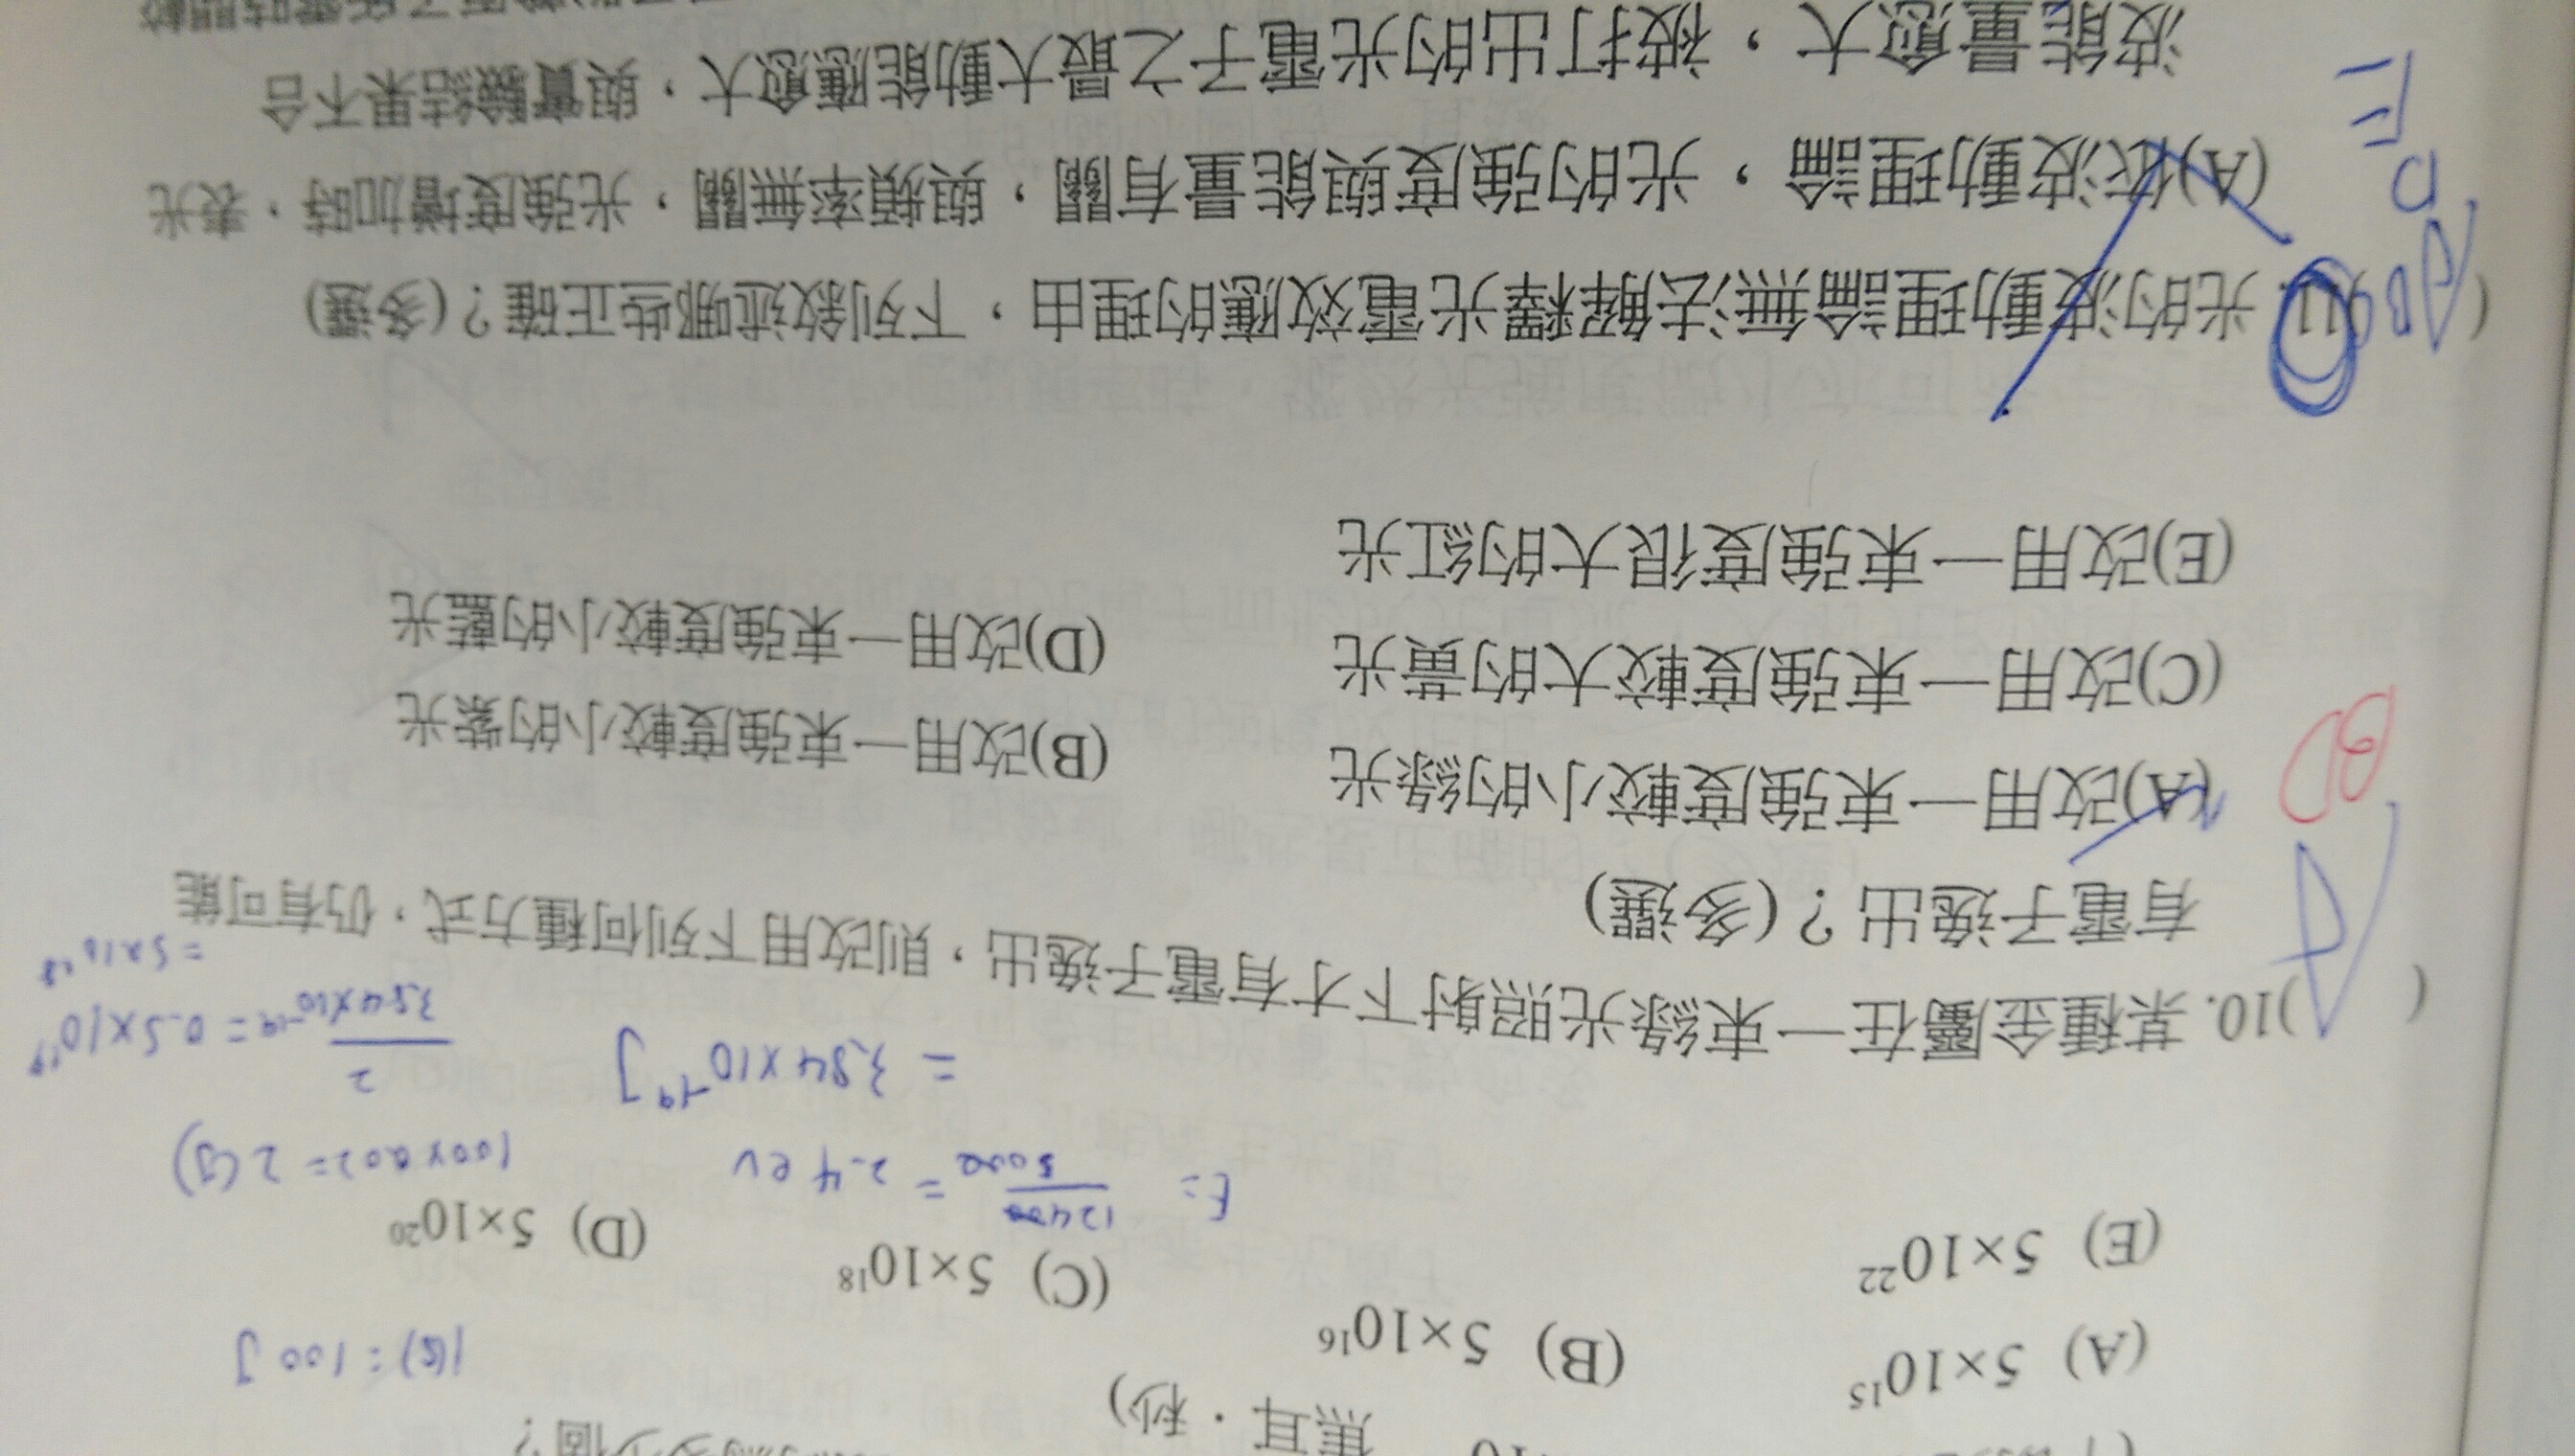 焦耳·秒)
(A) 5×10¹⁵
(B) 5×10¹⁶
(C) 5×10¹⁸
(D) 5×10²⁰
(E) 5×10²²
1(s) = 100 J
E = 12400/5000 = 2.4 eV
= 3.84×10⁻¹⁹ J
100×0.02 = 2(J)
2/3.84×10⁻¹⁹ = 0.5×10¹⁹
= 5×10¹⁸
( )10. 某種金屬在一束綠光照射下才有電子逸出，則改用下列何種方式，仍有可能
有電子逸出？(多選)
A
BD
(A)改用一束強度較小的綠光
(B)改用一束強度較小的紫光
(C)改用一束強度較大的黃光
(D)改用一束強度較小的藍光
(E)改用一束強度很大的紅光
( )11. 光的波動理論無法解釋光電效應的理由，下列敘述哪些正確？(多選)
D
E
(A)依波動理論，光的強度與能量有關，與頻率無關，光強度增加時，表光
波能量愈大，被打出的光電子之最大動能應愈大，與實驗結果不合